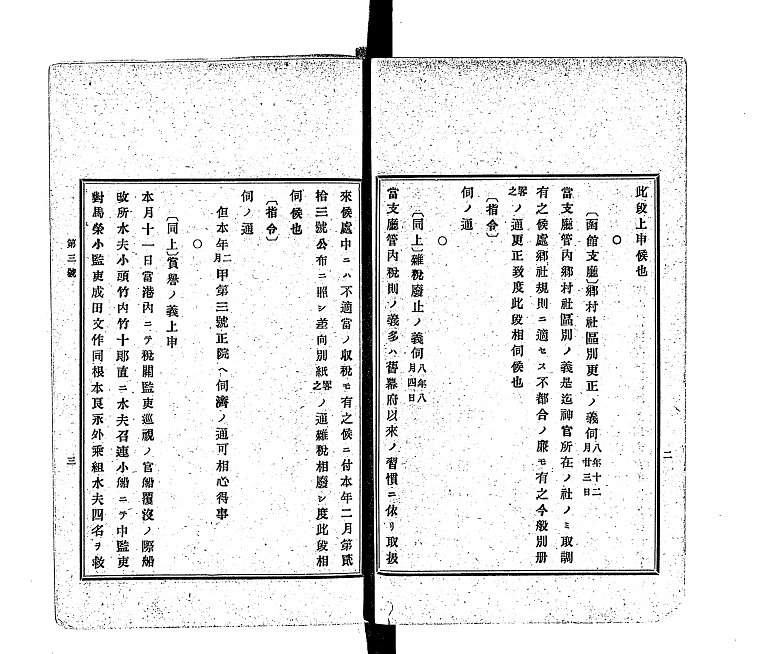 此段上申候也
○
〔函館支廳〕鄕村社區別更正ノ義伺 八年十二月廿三日
當支廳管內鄕村社區別ノ義是迄神官所在ノ社ノミ取調
有之候處鄕社規則ニ適セス不都合ノ廉モ有之今般別册
畧之ノ通更正致度此段相伺候也
〔指令〕
伺ノ通
○
〔同上〕雜稅廢止ノ義伺 八年八月四日
當支廳管內稅則ノ義多ハ舊幕府以來ノ習慣ニ依リ取扱
二
來候處中ニハ不適當ノ收稅モ有之候ニ付本年二月第貳
拾三號公布ニ照シ差向別紙畧之ノ通雜稅相廢シ度此段相
伺候也
〔指令〕
伺ノ通
但本年二月甲第三號正院ヘ伺濟ノ通可相心得事
○
〔同上〕賞譽ノ義上申
本月十一日當港內ニテ稅關監吏巡視ノ官船覆沒ノ際船
改所水夫小頭竹內竹十郞直ニ水夫召連小船ニテ中監吏
對馬榮小監吏成田文作同根本良永外乘組水夫四名ヲ救
第三號
三